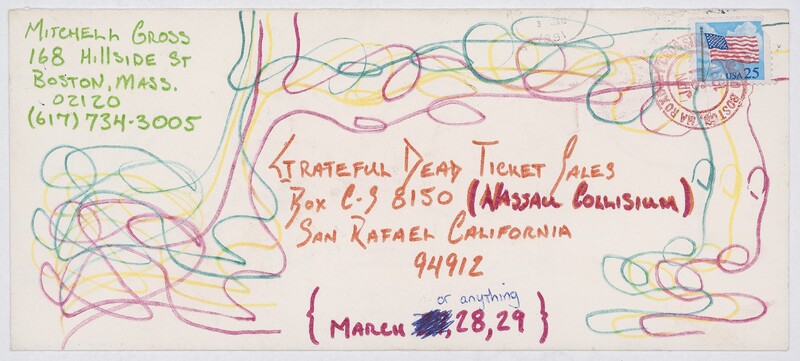 Mitchell Gross
168 Hillside St
Boston, Mass.
02120
(617) 734-3005
USA 25
Grateful Dead Ticket Sales
Box C-S 8150 (Nassau Collisium)
San Rafael California
94912
or anything
{ March , 28, 29 }